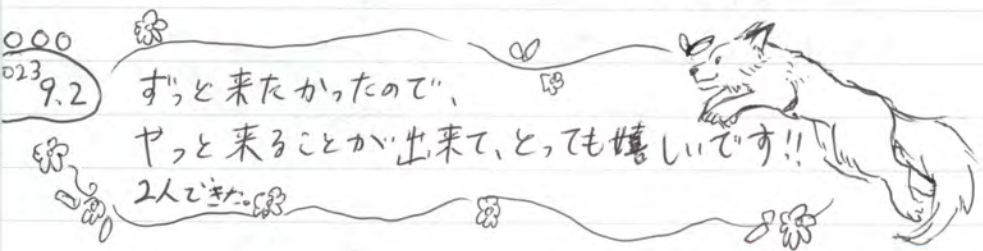 023
9.2
ずっと来たかったので、
やっと来ることが出来て、とっても嬉しいです!!
2人できた。